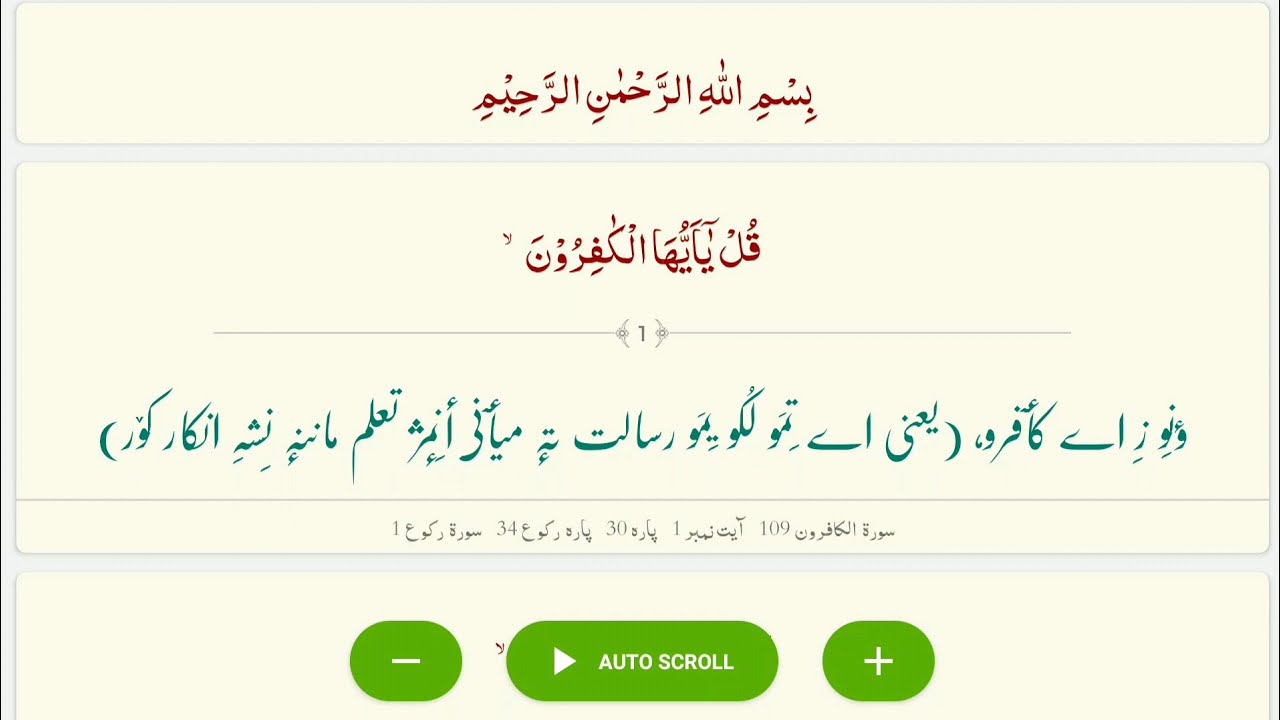 بِسْمِ اللّٰهِ الرَّحْمٰنِ الرَّحِيْمِ
قُلْ يٰٓاَيُّهَا الْكٰفِرُوْنَ ۙ
1
ؤنِو زِ اے کٲفرو، (یعنی اے تِمَو لُکو یِمَو رسالت تہٕ میٲنۍ أنِمٕژ تعلم ماننہٕ نِشہِ انکار کوٚر)
سورۃ الکافرون 109 آیت نمبر 1 پارہ 30 پارہ رکوع 34 سورۃ رکوع 1
AUTO SCROLL